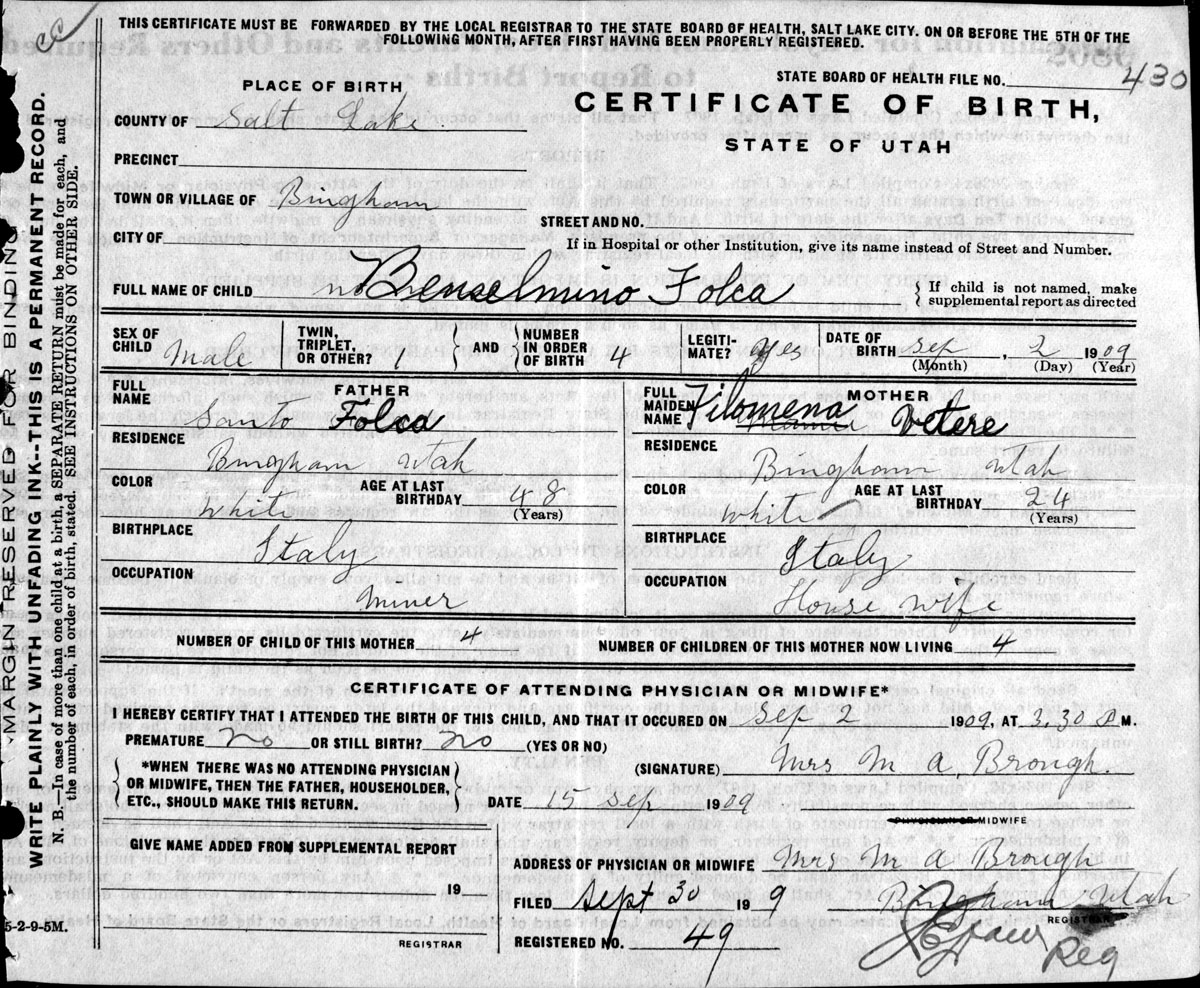 THIS CERTIFICATE MUST BE FORWARDED BY THE LOCAL REGISTRAR TO THE STATE BOARD OF HEALTH, SALT LAKE CITY. ON OR BEFORE THE 5TH OF THE
FOLLOWING MONTH, AFTER FIRST HAVING BEEN PROPERLY REGISTERED.
STATE BOARD OF HEALTH FILE NO. 430
PLACE OF BIRTH
CERTIFICATE OF BIRTH,
STATE OF UTAH
COUNTY OF Salt Lake
PRECINCT
TOWN OR VILLAGE OF Bingham
STREET AND NO.
CITY OF
If in Hospital or other Institution, give its name instead of Street and Number.
FULL NAME OF CHILD Benselmino Folca
{ If child is not named, make
supplemental report as directed
SEX OF CHILD Male
TWIN, TRIPLET, OR OTHER? 1 } AND { NUMBER IN ORDER OF BIRTH 4
LEGITI-MATE? Yes
DATE OF BIRTH Sep, 2 1909
(Month) (Day) (Year)
FATHER
FULL NAME Santo Folca
RESIDENCE Bingham Utah
COLOR White AGE AT LAST BIRTHDAY 48
(Years)
BIRTHPLACE Italy
OCCUPATION Miner
MOTHER
FULL MAIDEN NAME Filomena Vetere
RESIDENCE Bingham Utah
COLOR White AGE AT LAST BIRTHDAY 24
(Years)
BIRTHPLACE Italy
OCCUPATION House wife
NUMBER OF CHILD OF THIS MOTHER 4 NUMBER OF CHILDREN OF THIS MOTHER NOW LIVING 4
CERTIFICATE OF ATTENDING PHYSICIAN OR MIDWIFE*
I HEREBY CERTIFY THAT I ATTENDED THE BIRTH OF THIS CHILD, AND THAT IT OCCURED ON Sep 2 1909, AT 3.30 M.
PREMATURE no OR STILL BIRTH? no (YES OR NO)
*WHEN THERE WAS NO ATTENDING PHYSICIAN
OR MIDWIFE, THEN THE FATHER, HOUSEHOLDER,
ETC., SHOULD MAKE THIS RETURN.
(SIGNATURE) Mrs M A, Brough.
DATE 15 Sep 1909
PHYSICIAN OR MIDWIFE
GIVE NAME ADDED FROM SUPPLEMENTAL REPORT
19
REGISTRAR
ADDRESS OF PHYSICIAN OR MIDWIFE Mrs M A Brough
Bingham Utah
FILED Sept 30 19 9
REGISTRAR
REGISTERED NO. 49
Reg
5-2-9-5M.
MARGIN RESERVE FOR BINDING
WRITE PLAINLY WITH UNFADING INK--THIS IS A PERMANENT RECORD.
N. B.—In case of more than one child at a birth, a SEPARATE RETURN must be made for each, and
the number of each, in order of birth, stated. SEE INSTRUCTIONS ON OTHER SIDE.